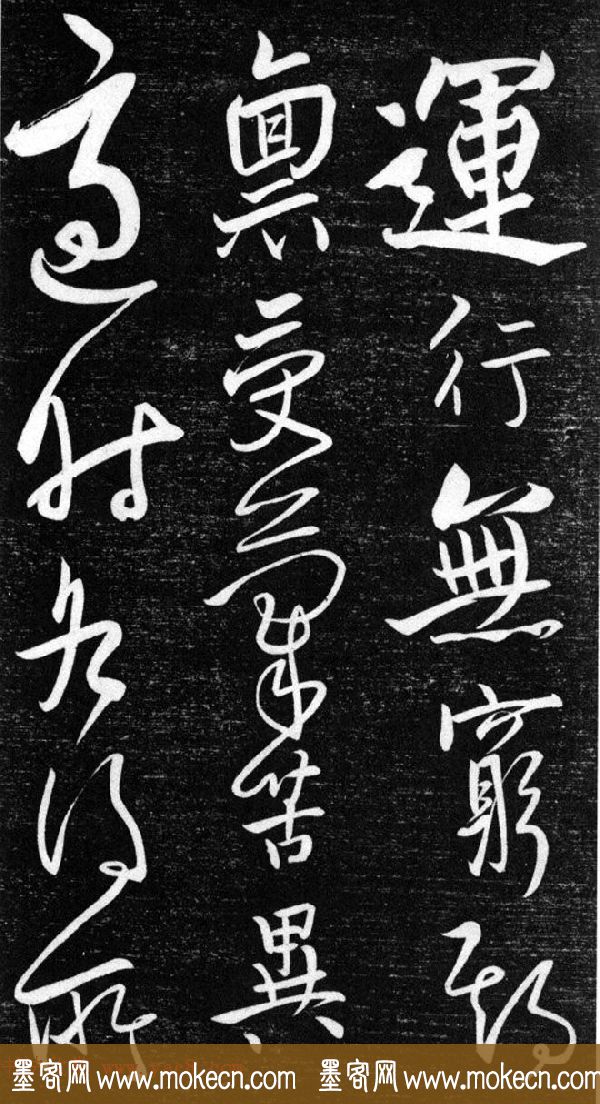 運行無窮期
稟受氣苦異
適時各得所
墨客网 www.mokecn.com 墨客网 www.mokecn.com